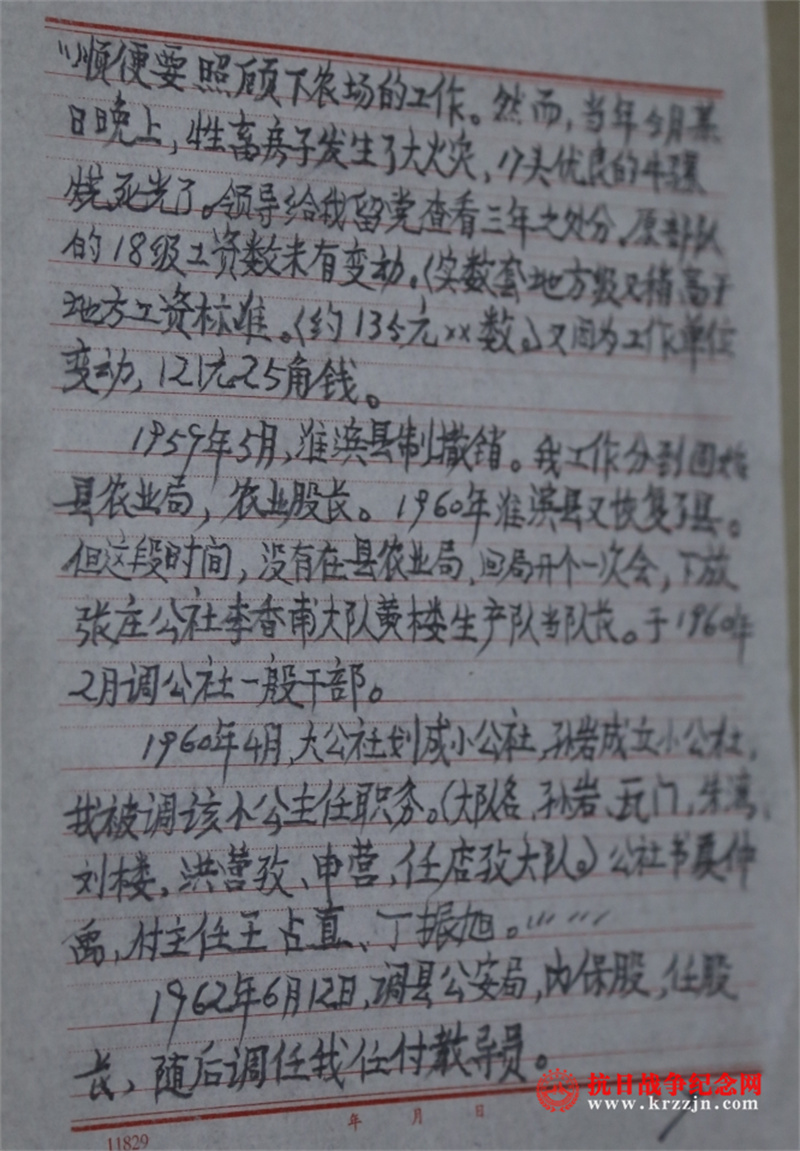 顺便要照顾下农场的工作。然而，当年5月某
日晚上，牲畜房子发生了大火灾，17头优良的牛骡
烧死光了。领导给我留党查看三年之处分。原部队
的18级工资数未有变动。（实数套地方级又稍高于
地方工资标准。（约135元××数。）又因为工作单位
变动，121元25角钱。
1959年5月，淮滨县制撤销。我工作分到固始
县农业局，农业股长。1960年淮滨县又恢复了县。
但这段时间，没有在县农业局，回局开个一次会，下放
张庄公社李香甫大队黄楼生产队当队长。于1960年
2月调公社一般干部。
1960年4月，大公社划成小公社，孙岩成立小公社，
我被调该小公主任职务。（大队各，孙岩、瓦门，朱湾、
刘楼，洪营孜、申营，任店孜大队。）公社书夏仲
禹，付主任王占直、丁振旭。……
1962年6月12日，调县公安局，内保股，任股
长，随后调任我任付教导员。
年 月 日
11829
抗日战争纪念网
www.krzzjn.com